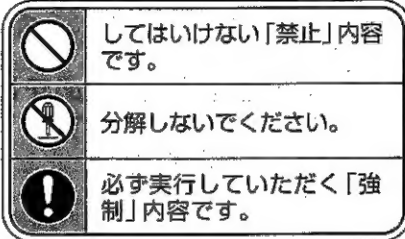 してはいけない「禁止」内容
です。
分解しないでください。
必ず実行していただく「強
制」内容です。